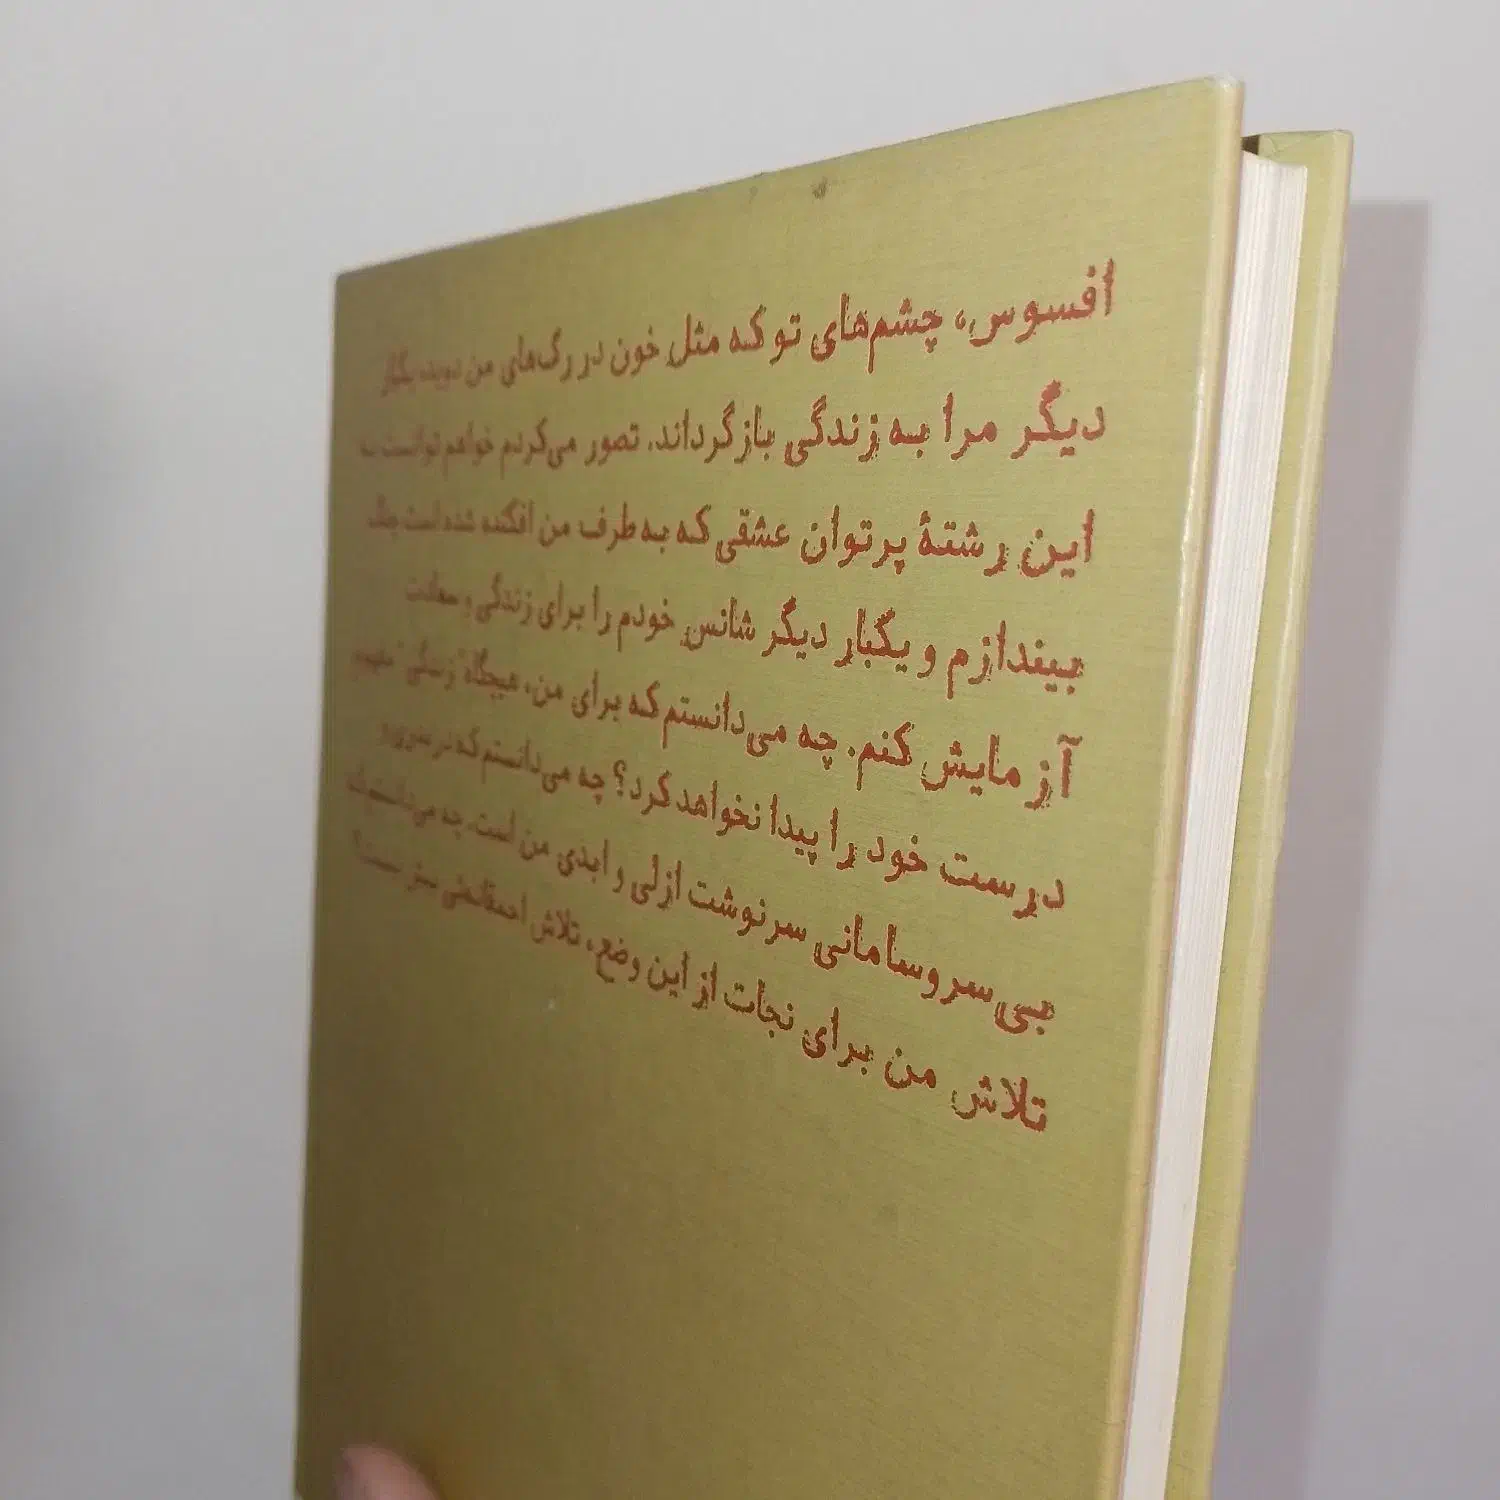 افسوس، چشم‌های تو که مثل خون در رگ‌های من دوید، یکبار
دیگر مرا به زندگی بازگرداند. تصور می‌کردم خواهم توانست به
این رشتهٔ پرتوان عشقی که به طرف من افکنده شده است چنگ
بیندازم و یکبار دیگر شانس خودم را برای زندگی و سعادت
آزمایش کنم. چه می‌دانستم که برای من، هیچگاه "زندگی" مفهوم
درست خود را پیدا نخواهد کرد؟ چه می‌دانستم که در بدری و
بی‌سروسامانی سرنوشت ازلی و ابدی من است. چه می‌دانستم که
تلاش من برای نجات از این وضع، تلاش احمقانه‌ئی بیش نیست؟